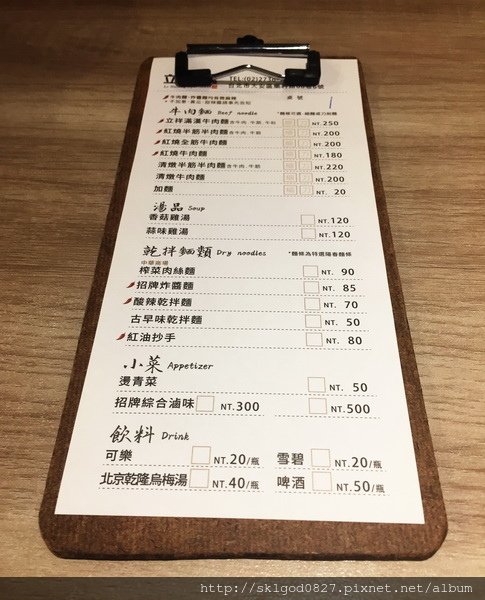 立
TEL:(02)27
台北市大安區
牛肉麵、炸醬麵均有微麻辣
桌號 1
牛肉麵 Beef noodle
立祥滿漢牛肉麵含牛肉、牛筋、牛肚 NT.250
紅燒半筋半肉麵含牛肉、牛筋 NT.200
紅燒全筋牛肉麵 NT.200
紅燒牛肉麵 NT.180
清燉半筋半肉麵含牛肉、牛筋 NT.220
清燉牛肉麵 NT.200
加麵 NT. 20
湯品 Soup
香菇雞湯 NT.120
蒜味雞湯 NT.120
乾拌麵類 Dry noodles *麵條為特選陽春麵條
中華商場
榨菜肉絲麵 NT. 90
招牌炸醬麵 NT. 85
酸辣乾拌麵 NT. 70
古早味乾拌麵 NT. 50
紅油抄手 NT. 80
小菜 Appetizer
燙青菜 NT. 50
招牌綜合滷味 NT.300 NT.500
飲料 Drink
可樂 NT.20/瓶 雪碧 NT.20/瓶
北京乾隆烏梅湯 NT.40/瓶 啤酒 NT.50/瓶
http://sklgod0827.pixnet.net/album